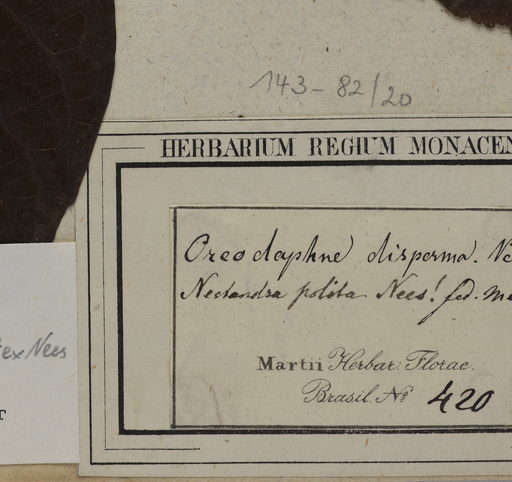 143-82/20
HERBARIUM REGIUM MONACEN
Oreodaphne disperma. Ne
Nectandra polita Nees! fid. Me
ex Nees
Martii Herbar. Florae.
Brasil. No 420